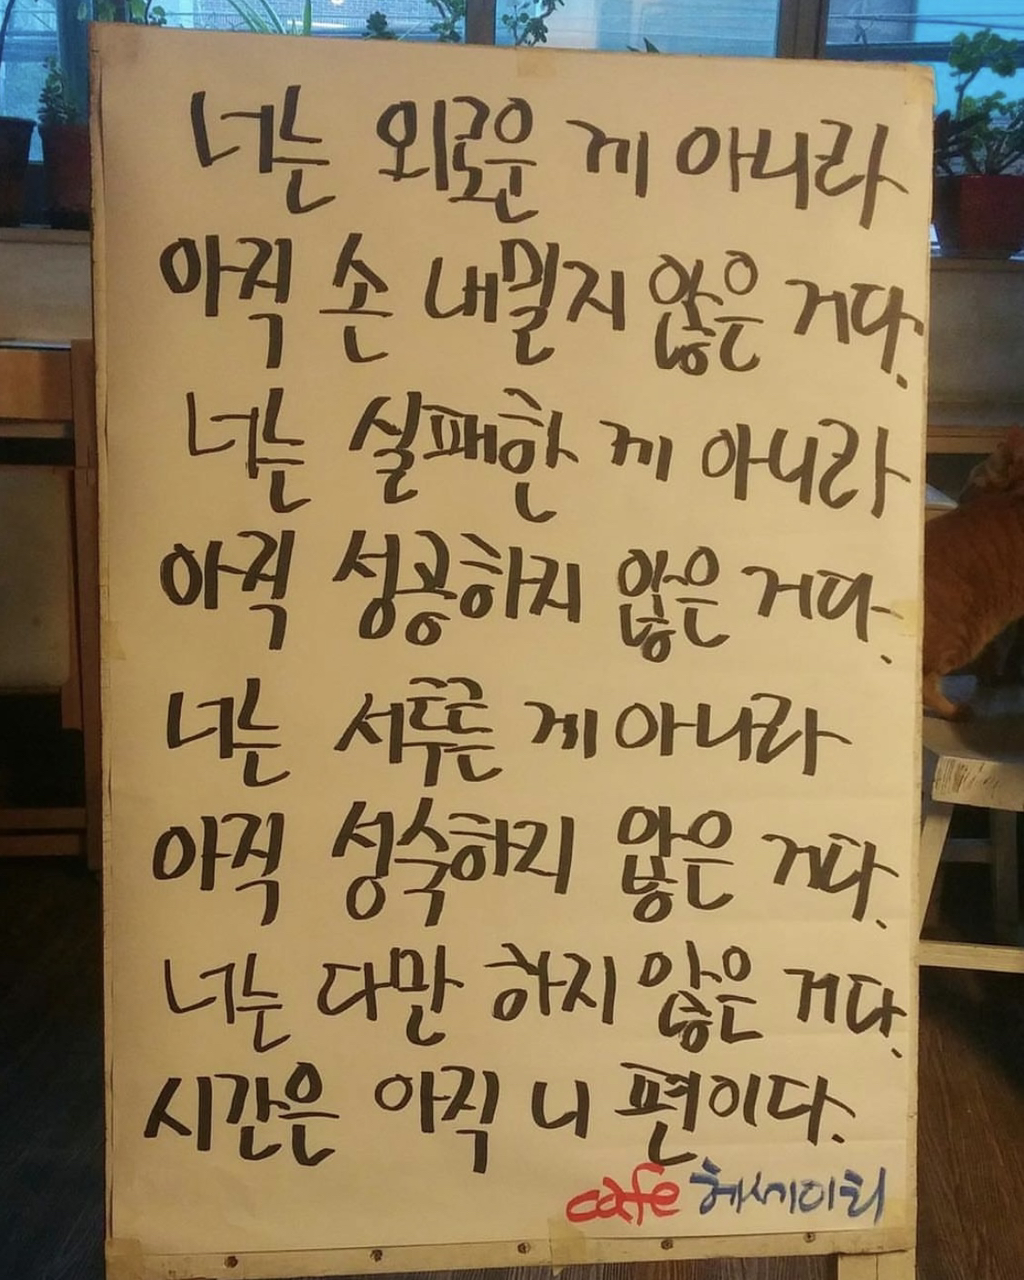 너는 외로운 게 아니라
아직 손 내밀지 않은 거다.
너는 실패한 게 아니라
아직 성공하지 않은 거다.
너는 서투른 게 아니라
아직 성숙하지 않은 거다.
너는 다만 하지 않은 거다.
시간은 아직 니 편이다.
cafe 헤세이티